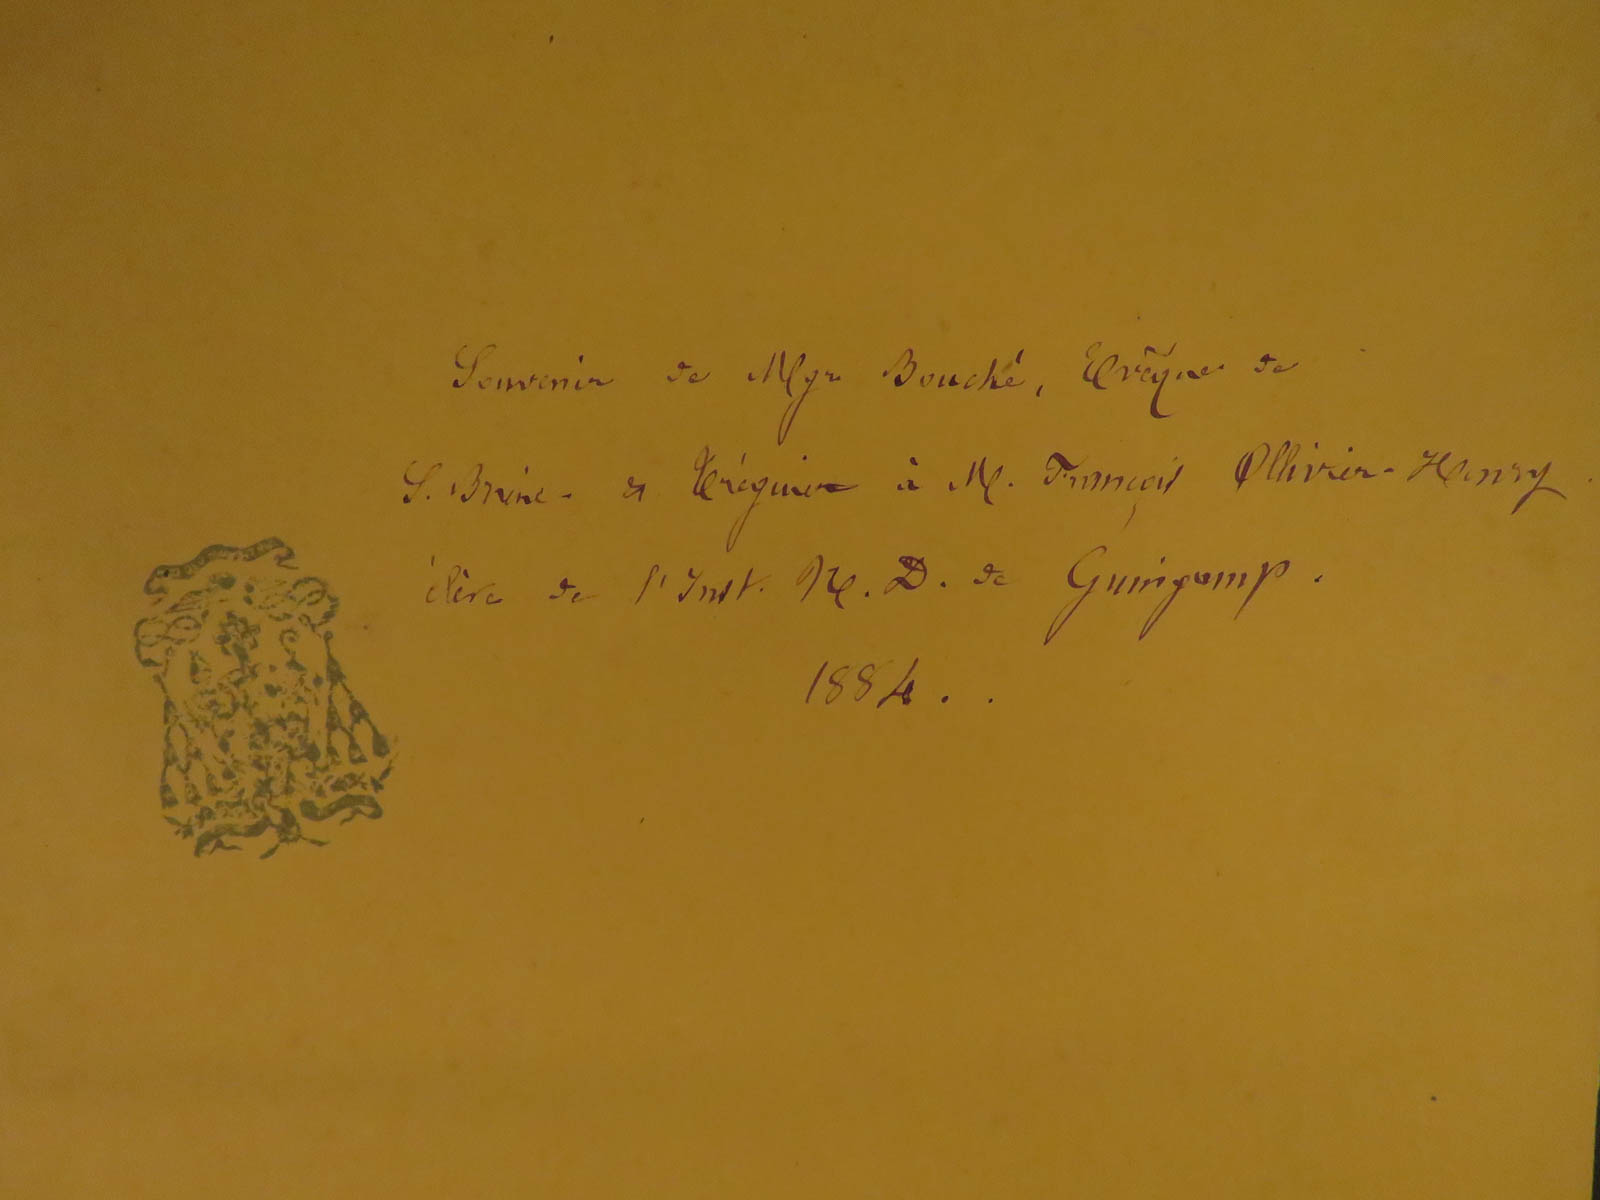 Souvenir de Mgr Bouché, Evêque de
S. Brieuc et Tréguier à M. François Ollivier-Henry
élève de l'Inst. N. D. de Guingamp.
1884..